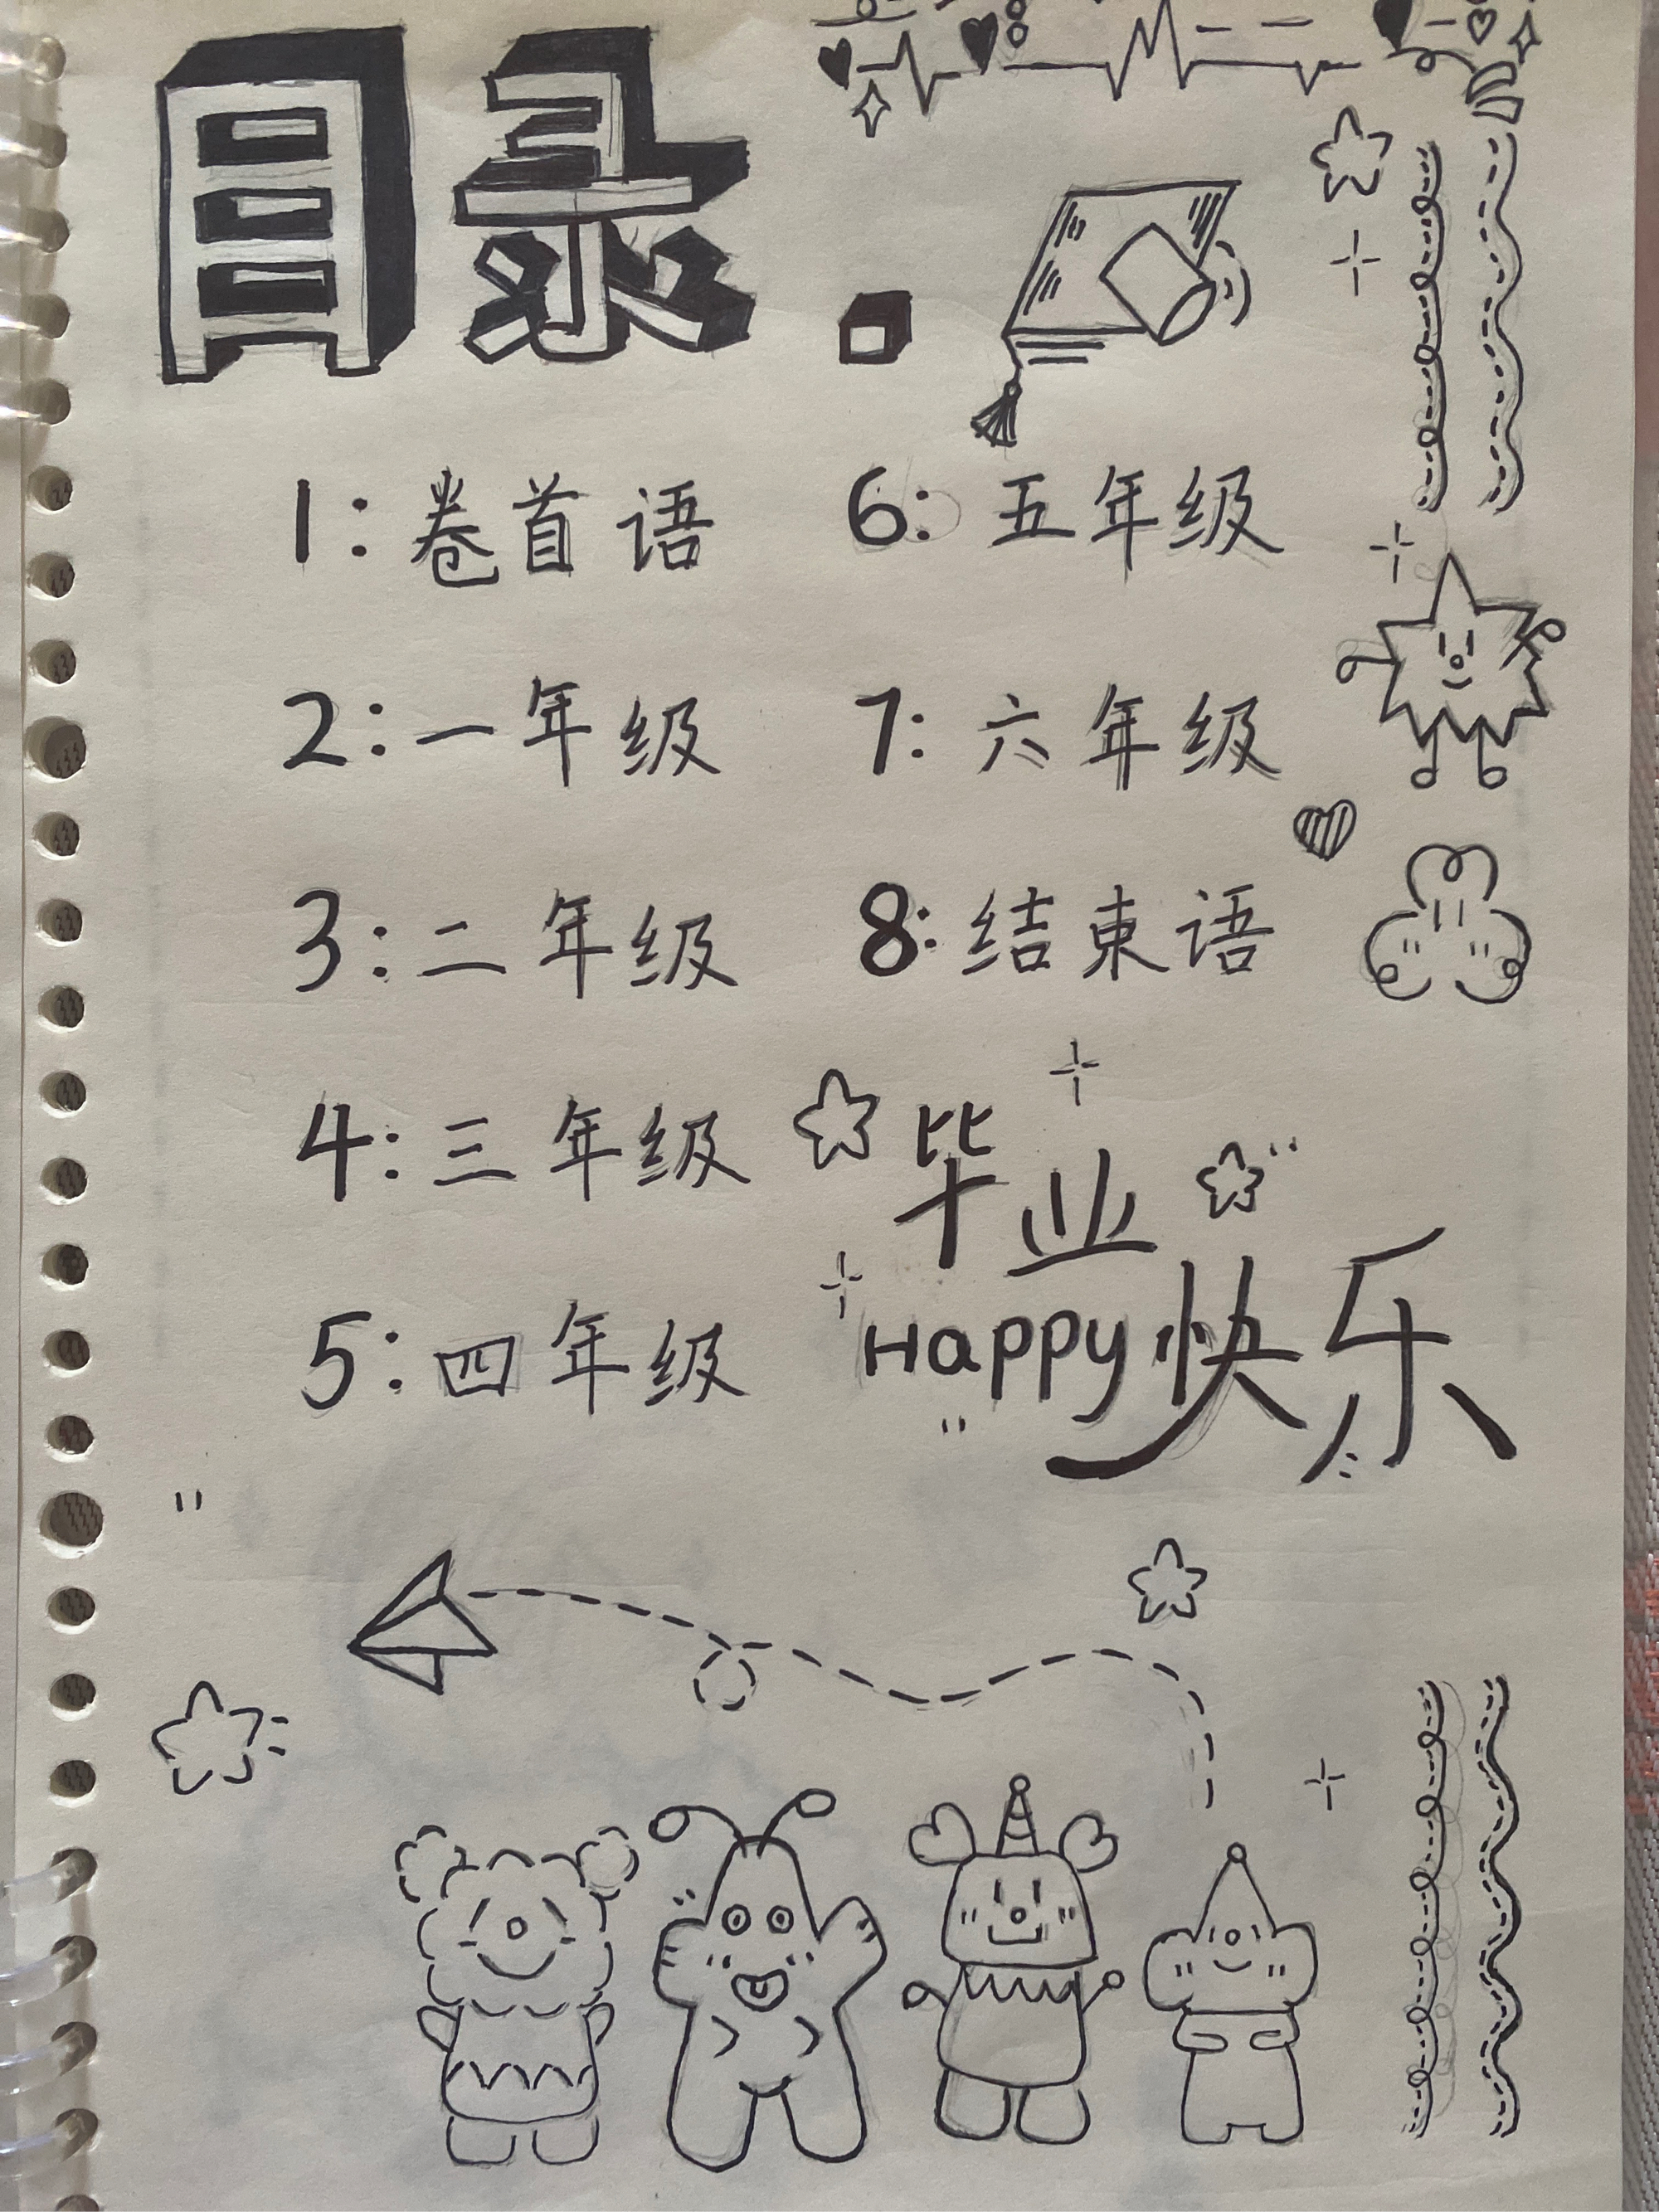 目录.
1:卷首语
2:一年级
3:二年级
4:三年级
5:四年级
6:五年级
7:六年级
8:结束语
毕业
Happy快乐